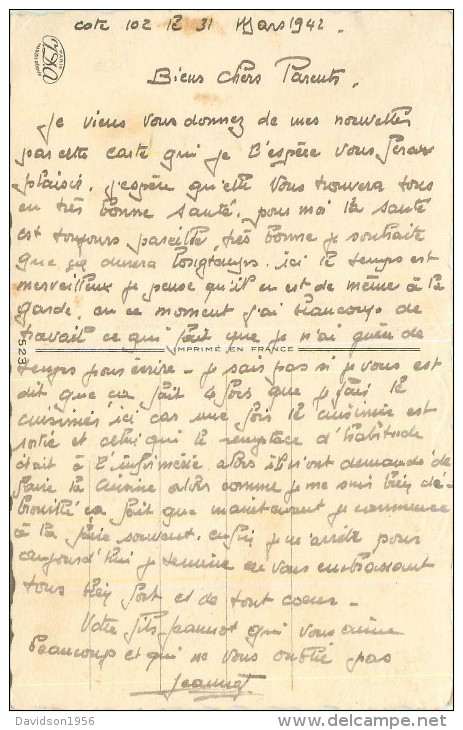 cote 102 le 31 Mars 1942.
YSKA
PARIS
Biens Chers Parents,
Je viens vous donnez de mes nouvelles
par cette carte qui je l'espère vous feras
plaisir. j'espère qu'elle vous trouvera tous
en très bonne santé. pour moi la santé
est toujours pareille, très bonne je souhaite
que ça durera longtemps. ici le temps est
merveilleux je pense qu'il en est de même à la
garde, en ce moment j'ai beaucoup de
travail ce qui fait que je n'ai guère de
523
IMPRIMÉ EN FRANCE
temps pour écrire - je sais pas si je vous est
dit que ça fait 4 fois que je fais le
cuisinier ici car une fois le cuisinier est
et celui qui le remplace d'habitude
était à l'infirmerie alors ils m'ont demandé de
faire la cuisine alors comme je me suis bien dé-
brouillé ça fait que maintenant je commence
à la faire souvent. enfin je m'arrête pour
aujourd'hui je termine en vous embrassant
tous bien fort et de tout coeur -
Votre fils Jeannot qui vous aime
beaucoup et qui ne vous oublie pas
Jeannot
Davidson1956
delcampe.net